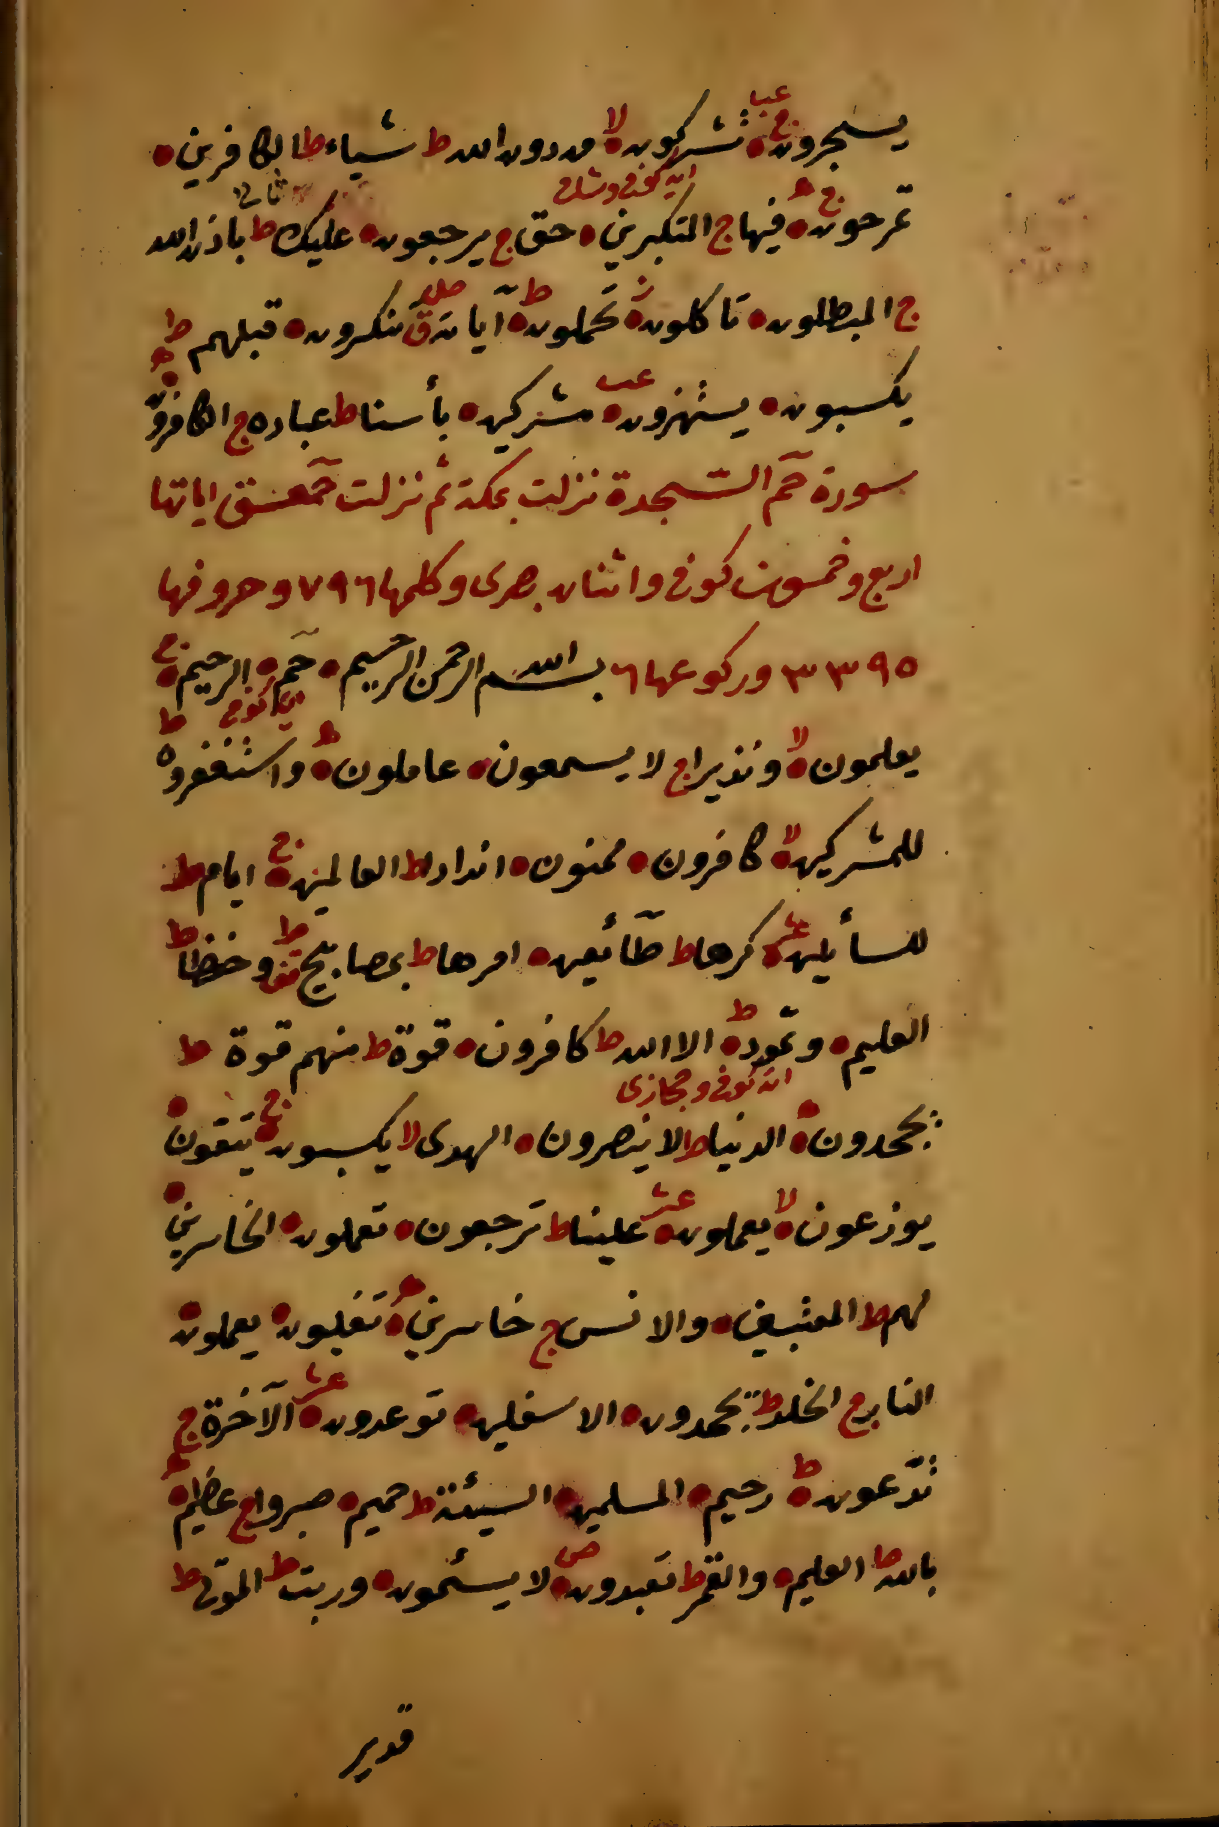 يسجرون ج عب تشركون لا من دون الله ط شياء ط الكافرين
تمرحون ج فيها ج المتكبرين حق ج يرجعون عليك ط باذن الله
اية كوفى وشامى
ج المبطلون تاكلون ز تحملون ط آياته ق صلى تنكرون قبلهم ط
يكسبون يستهزون عب مشركين بأسنا ط عباده ج الكافرون
سورة حم السجدة نزلت بمكة ثم نزلت حمعسق اياتها
اربع وخمسون كوفى واثنان بصرى وكلمها ٧٩٦ وحروفها
٣٣٩٥ وركوعها ٦ بسم الله الرحمن الرحيم حم الرحيم ج
اية كوفى
يعلمون لا ونذيرا ج لا يسمعون عاملون واستغفروه ط
للمشركين لا كافرون ممنون اندادا ط العالمين ج ايام ط
للسائلين عشر كرها ط طآئعين امرها ط بمصابيح ط وحفظا ط
العليم وثمود ط الا الله ط كافرون قوة ط منهم قوة ط
اية كوفى وحجازى
يجحدون الدنيا ط لا ينصرون الهدى لا يكسبون ج يتقون
يوزعون لا يعملون عشر علينا ط ترجعون تعملون الخاسرين
لهم ط المعتبين والانس ج خاسرين تغلبون يعملون
النار ج الخلد ط يجحدون الاسفلين توعدون عشر الآخرة ج
تدعون ط رحيم المسلمين السيئة ط حميم صبروا ج عظيم
بالله ط العليم والقمر ط تعبدون لا يسئمون وربت ط الموتى ط
قدير